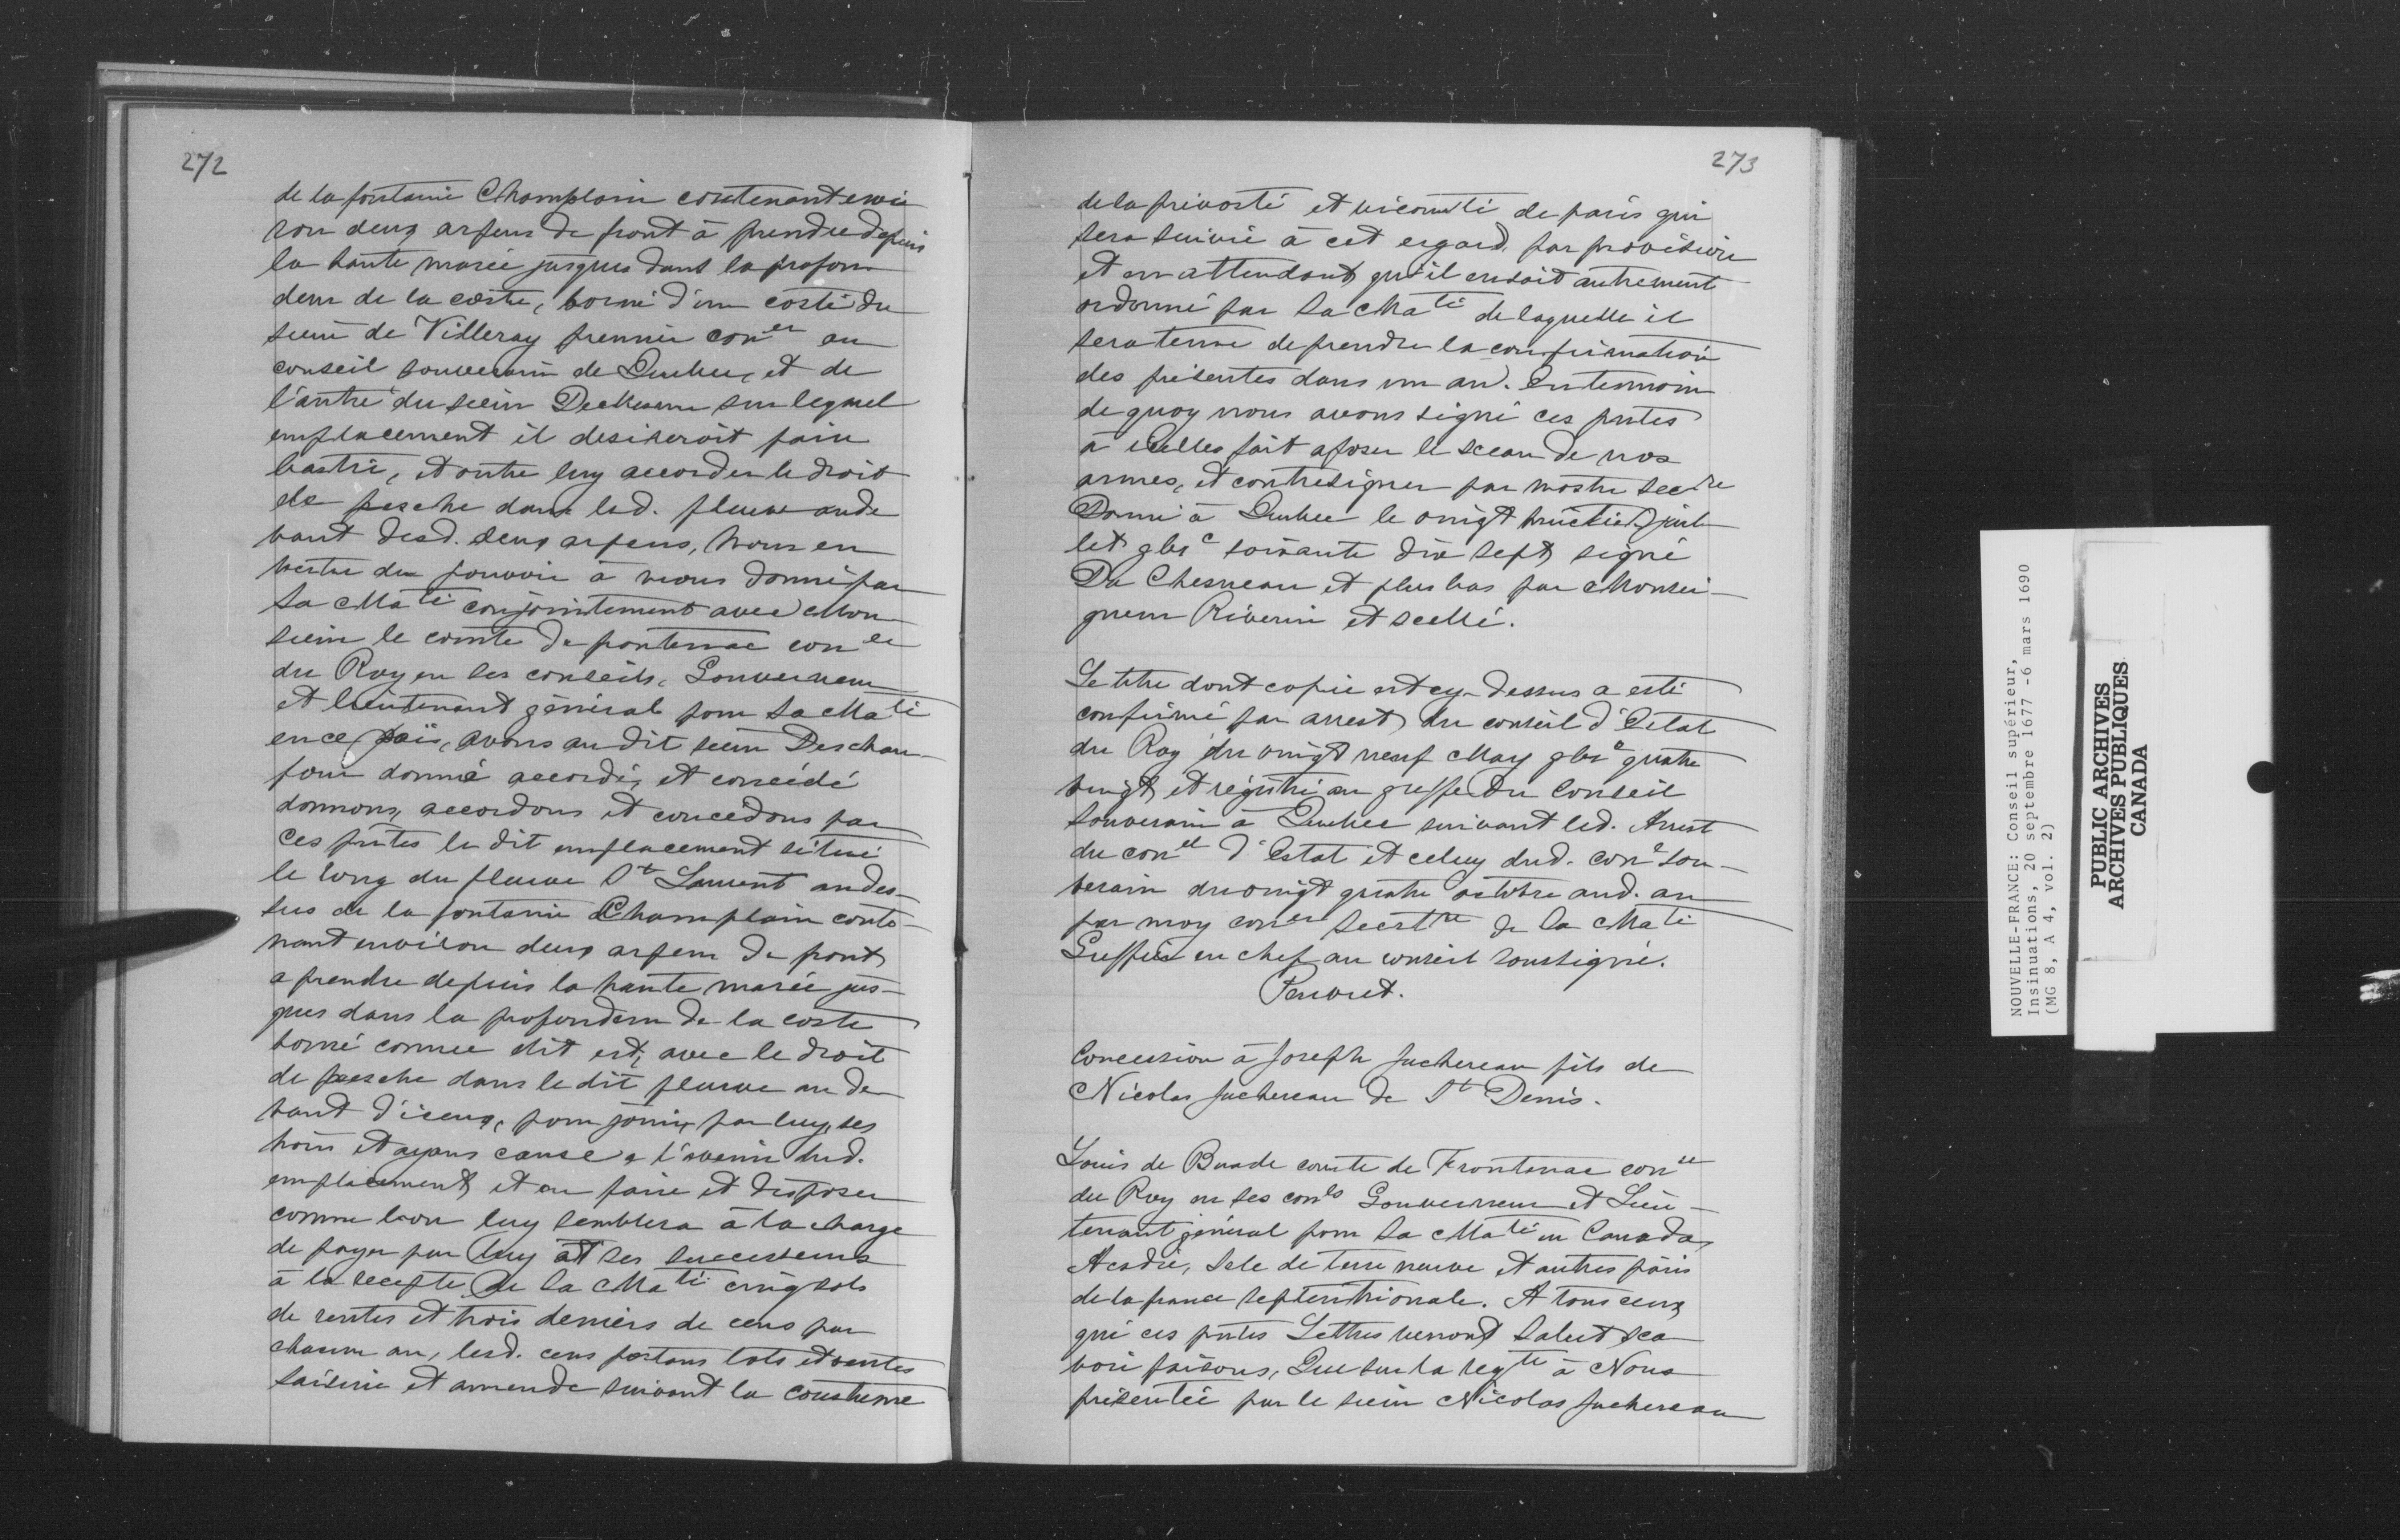 272
de la fontaine Champlain contenant envi
ron deux arpens de front à prendre depuis
la haute marée jusques dans la profon
deur de la coste, borné d'un costé du
sieur de Villeray premier con^er au
conseil souverain de Quebec, et de
l'autre du sieur sur lequel
emplacement il desireroit faire
bastir, et outre luy accorder le droit
de pesche dans led. fleuve au de
vant desd. deux arpens, Nous en
vertu du pouvoir à nous donné par
Sa Ma^té conjointement avec Mon
sieur le comte de frontenac con^er
du Roy en ses conseils, Gouverneur
et lieutenant général pour Sa Ma^té
en ce païs, avons au dit sieur Descham
four donné accordé, et concédé
donnons, accordons et concedons par
ces p^ntes le dit emplacement situé
le long du fleuve S^t Laurent au des-
sus de la fontaine Champlain conte-
nant environ deux arpens de front
a prendre depuis la haute marée jus-
ques dans la profondeur de la coste
borné comme dit est, avec le droit
de pesche dans le dit fleuve au de
vant d'iceux, pour jouir par luy, ses
hoirs et ayans cause a l'avenir dud.
emplacement et en faire et disposer
comme bon luy semblera à la charge
de payer par luy et ses successeurs
à la recepte de Sa Ma^té cinq sols
de rentes et trois deniers de cens par
chacun an, lesd. cens portans lots et ventes
saisine et amende suivant la coustume
273
de la prevosté et vicomté de paris qui
sera suivie à cet esgard par provision
et en attendant qu'il en soit autrement
ordonné par Sa Ma^té de laquelle il
sera tenu de prendre la confirmation
des présentes dans un an. En temoin
de quoy nous avons signé ces p^ntes
à icelles fait aposer le sceau de nos
armes, et contresigner par nostre sec^re
Donné à Quebec le vingt huictie juil
let gbi^c soixante dix sept, signé
Du Chesneau et plus bas par Monsei-
gneur Riverin et scellé.
Le titre dont copie est cy-dessus a esté
confirmé par arrest du conseil d'Estat
du Roy du vingt neuf May gbi^c quatre
vingt et régistré au greffe du Conseil
Souverain à Quebec suivant led. Arrest
du con^el d'Estat et celuy dud. con^l sou-
verain du vingt quatre octobre aud. an
par moy con^er Secrét^re de Sa Ma^té
Greffier en chef au conseil soussigné.
Peuvret.
Concession à Joseph Juchereau fils de
Nicolas Juchereau de S^t Denis.
Louis de Buade comte de Frontenac con^er
du Roy en ses con^ls Gouverneur et Lieu-
tenant général pour Sa Ma^té en Canada,
Acadie, Isle de terre neuve et autres païs
de la france septentrionale. A tous ceux
qui ces p^ntes Lettres verront Salut sca
voir faisons, Que sur la req^te à Nous
présentée par le sieur Nicolas Juchereau
NOUVELLE-FRANCE: Conseil supérieur,
Insinuations, 20 septembre 1677 -6 mars 1690
(MG 8, A 4, vol. 2)
PUBLIC ARCHIVES
ARCHIVES PUBLIQUES
CANADA